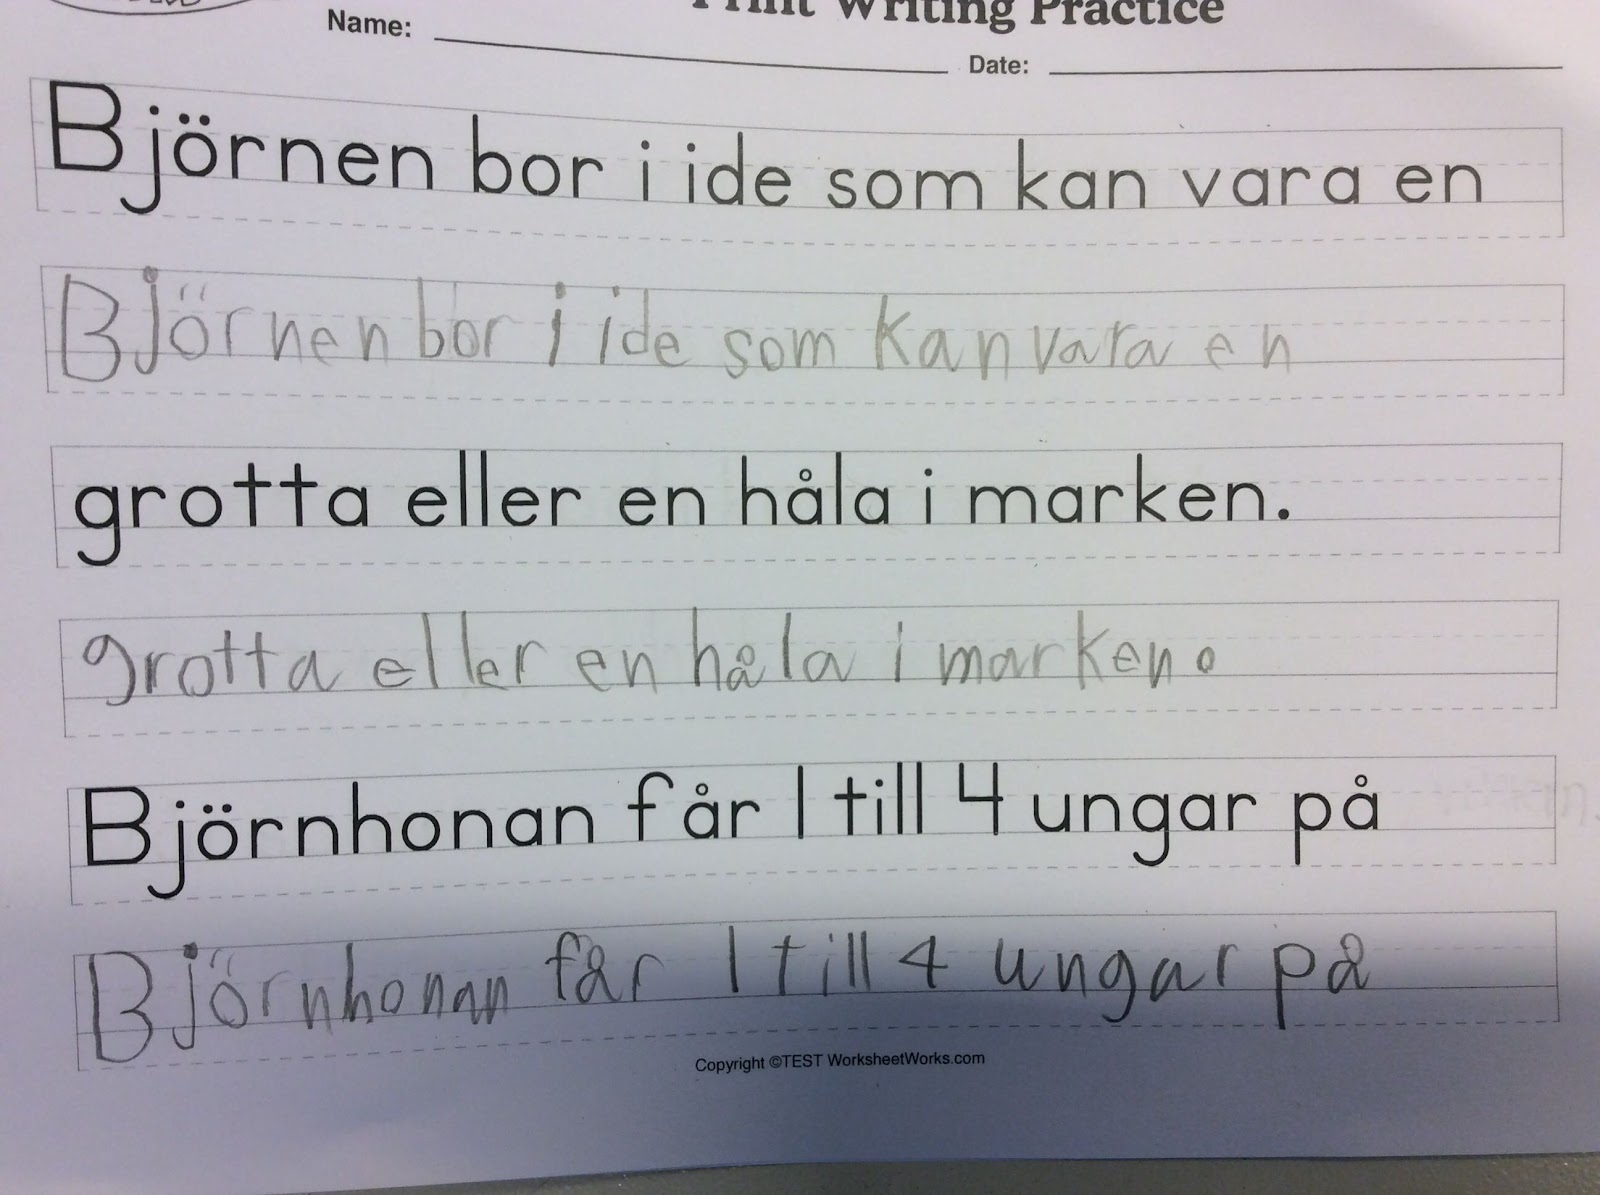 Print Writing Practice
Name:
Date:
Björnen bor i ide som kan vara en
Björnen bor i ide som kan vara en
grotta eller en håla i marken.
grotta eller en håla i marken.
Björnhonan får 1 till 4 ungar på
Björnhonan får 1 till 4 ungar på
Copyright ©TEST WorksheetWorks.com